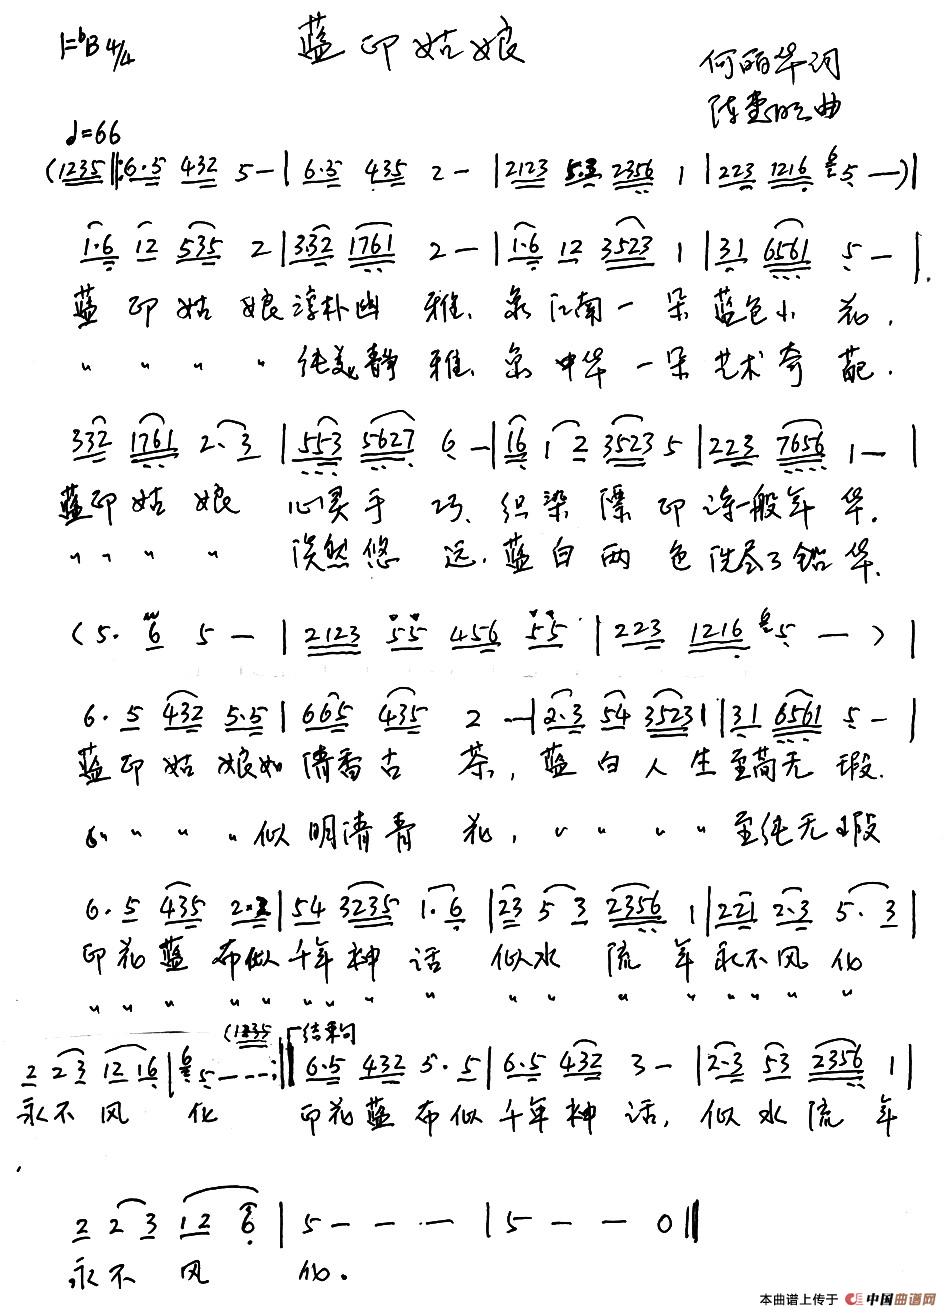 蓝印姑娘
1=♭B 4/4
何丽华词
♩=66
(1235‖:6·5 432 5-|6·5 435 2-|2123 5·3 2356 1|223 1216 6 5 —)|
1·6 12 535 2|332 1761 2-|1·6 12 3523 1|31 6561 5-|
蓝印姑娘淳朴幽雅、象江南一朵蓝色小花,
" " " " 纯美静雅、象中华一朵艺术奇葩.
332 1761 2·3|553 5627 6-|16 1 2 3523 5|223 7656 1-|
蓝印姑娘 心灵手巧、织染漂印诗一般年华.
" " " " 淡然悠远.蓝白两色洗尽了铅华.
(5· 6 5 —|2123 55 456 55|223 1216 6 5 —)|
6· 5 432 5·5|665 435 2 —|2·3 54 3523 1|31 6561 5-|
蓝印姑娘如清香古茶,蓝白人生至高无瑕.
" " " " 似明清青花," " " " 至纯无瑕
6· 5 435 2·2|54 3235 1·6|23 5 3 2356 1|221 2·3 5·3|
印花蓝布似千年神话 似水流年永不风化
" " " " " " " " " " " " " " " " "
(1235 结束句
2 2 3 12 16|6 5 - - - :‖ 6·5 432 5·5|6·5 432 3-|2·3 53 2356 1|
永不风化 印花蓝布似千年神话,似水流年
2 2 3 1 2 6|5 — — —|5 — — 0‖
永不风化.
本曲谱上传于 中国曲谱网